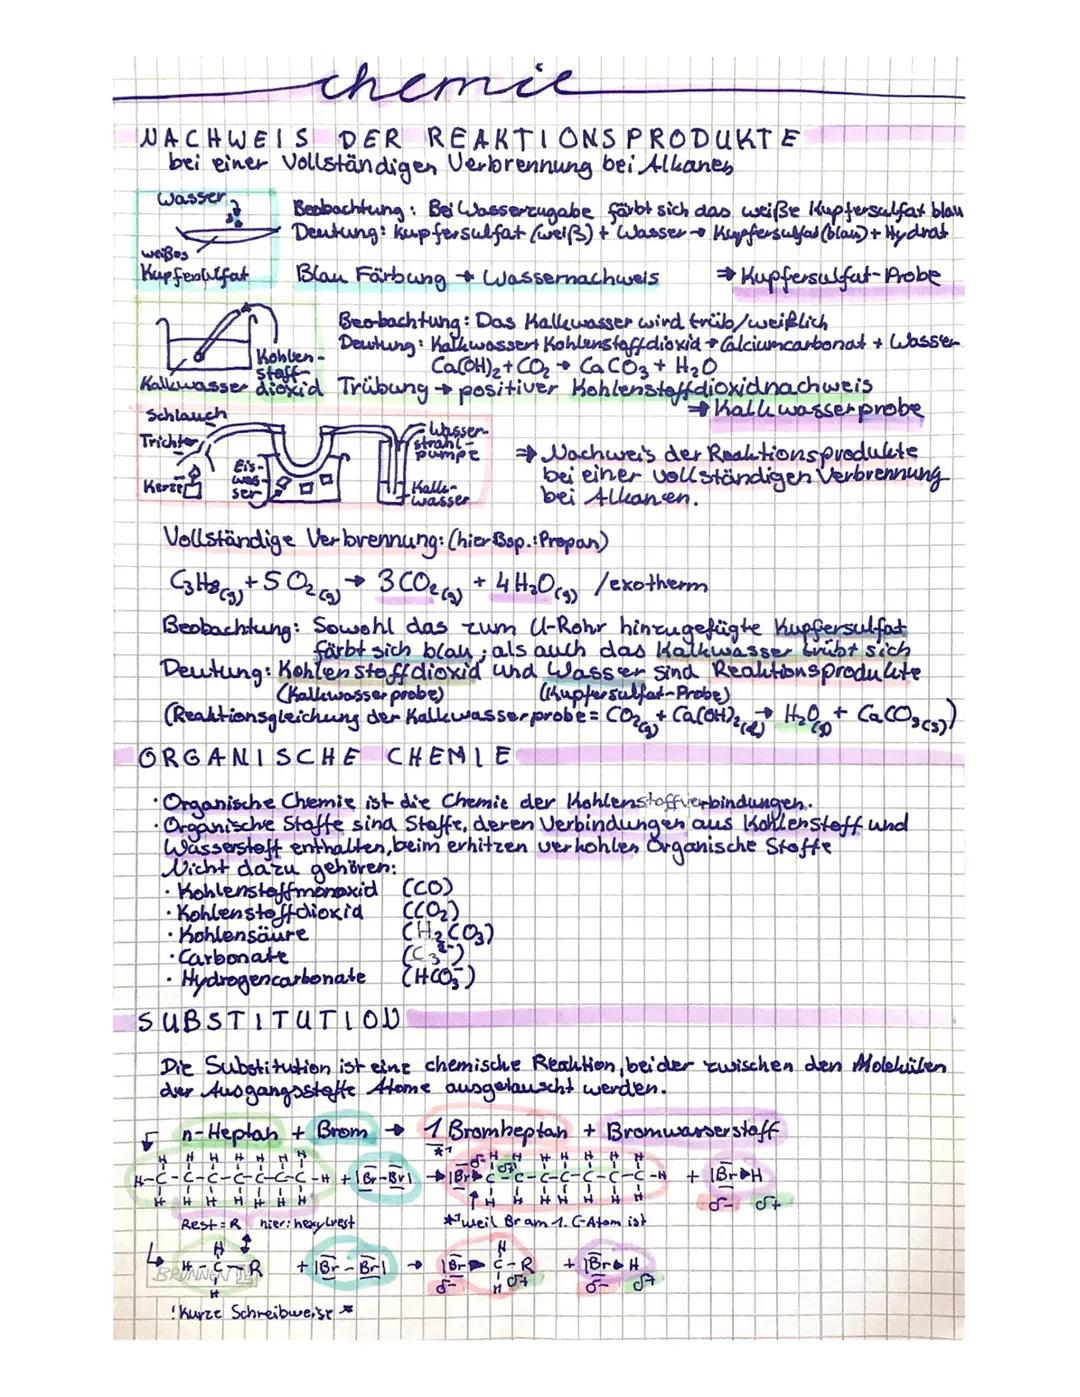 chemie
NACHWEIS DER REAKTIONSPRODUKTE
bei einer Vollständigen Verbrennung bei Alkanen
Wasser
weißes
Kupfersulfat
Beobachtung: Bei Wasserzugabe färbt sich das weiße Kupfersulfat blau
Deutung: Kupfersulfat (weiß) + Wasser → Kupfersulfat (blau) + Hydrat
Blau Färbung → Wassernachweis ⇒ Kupfersulfat-Probe
Kohlen-
stoff-
dioxid
Kalkwasser
Beobachtung: Das Kalkwasser wird trüb/weißlich
Deutung: Kalkwasser + Kohlenstoffdioxid → Calciumcarbonat + Wasser
Ca(OH)₂ + CO₂ → CaCO₃ + H₂O
Trübung → positiver Kohlenstoffdioxidnachweis
⇒ Kalkwasserprobe
Schlauch
Trichter
Kerze
Eis-
was-
ser
Wasser-
strahl-
pumpe
Kalk-
wasser
⇒ Nachweis der Reaktionsprodukte
bei einer vollständigen Verbrennung
bei Alkanen.
Vollständige Verbrennung: (hier Bsp.: Propan)
C₃H₈(g) + 5 O₂(g) → 3 CO₂(g) + 4 H₂O(g) /exotherm
Beobachtung: Sowohl das zum U-Rohr hinzugefügte Kupfersulfat
färbt sich blau, als auch das Kalkwasser trübt sich
Deutung: Kohlenstoffdioxid und Wasser sind Reaktionsprodukte
(Kalkwasserprobe) (Kupfersulfat-Probe)
(Reaktionsgleichung der Kalkwasserprobe = CO₂(g) + Ca(OH)₂(l) → H₂O(g) + CaCO₃(s))
ORGANISCHE CHEMIE
· Organische Chemie ist die Chemie der Kohlenstoffverbindungen.
· Organische Stoffe sind Stoffe, deren Verbindungen aus Kohlenstoff und
Wasserstoff enthalten, beim erhitzen verkohlen Organische Stoffe
Nicht dazu gehören:
· Kohlenstoffmonoxid (CO)
· Kohlenstoffdioxid (CO₂)
· Kohlensäure (H₂CO₃)
· Carbonate (C₃²⁻)
· Hydrogencarbonate (HCO₃⁻)
SUBSTITUTION
Die Substitution ist eine chemische Reaktion, bei der zwischen den Molekülen
der Ausgangsstoffe Atome ausgetauscht werden.
n-Heptan + Brom → 1 Bromheptan + Bromwasserstoff
*¹
H H H H H H H δ- H H H H H H H
H-C-C-C-C-C-C-C-H + |Br-Br| → |Br▸C-C-C-C-C-C-C-H + |Br▸H
H H H H H H H H H H H H H H δ- δ+
Rest = R hier: hexylrest *¹weil Br am 1. C-Atom ist
H H
H-C-R + |Br-Br| → |Br▸C-R + |Br▸H
H δ- H δ+ δ- δ+
BRUNNEN
! Kurze Schreibweise